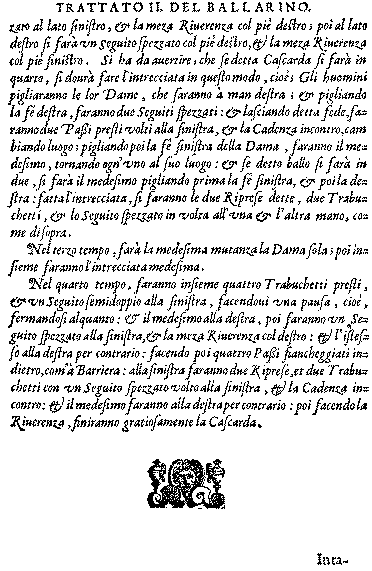 TRATTATO II. DEL BALLARINO.
zato al lato sinistro, & la meza Riuerenza col piè destro; poi al lato
destro si farà vn Seguito spezzato col piè destro, & la meza Riuerenza
col piè sinistro. Si ha da auertire, che se detta Cascarda si farà in
quarto, si dourà fare l'intrecciata in questo modo, cioè; Gli huomini
pigliaranno le lor Dame, che saranno à man destra; & pigliando
la fè destra, faranno due Seguiti spezzati: & lasciando detta fede, fa=
ranno due Paßi presti volti alla sinistra, & la Cadenza incontro, cam
biando luogo; pigliando poi la fè sinistra della Dama, faranno il me=
desimo, tornando ogn'vno al suo luogo: & se detto ballo si farà in
due, si farà il medesimo pigliando prima la fè sinistra, & poi la de=
stra: fatta l'intrecciata, si faranno le due Riprese dette, due Trabu=
chetti, & lo Seguito spezzato in volta all'vna & l'altra mano, co=
me disopra.
Nel terzo tempo, farà la medesima mutanza la Dama sola; poi in=
sieme faranno l'intrecciata medesima.
Nel quarto tempo, faranno insieme quattro Trabuchetti presti,
& vn Seguito semidoppio alla sinistra, facendoui vna pausa, cioè,
fermandosi alquanto: & il medesimo alla destra, poi faranno vn Se=
guito spezzato alla sinistra, & la meza Riuerenza col destro: & l'istes=
so alla destra per contrario: facendo poi quattro Paßi fiancheggiati in=
dietro, com'à Barriera: alla sinistra faranno due Riprese, et due Trabu=
chetti con vn Seguito spezzato volto alla sinistra, & la Cadenza in=
contro: & il medesimo faranno alla destra per contrario: poi facendo la
Riuerenza, finiranno gratiosamente la Cascarda.
Inta-